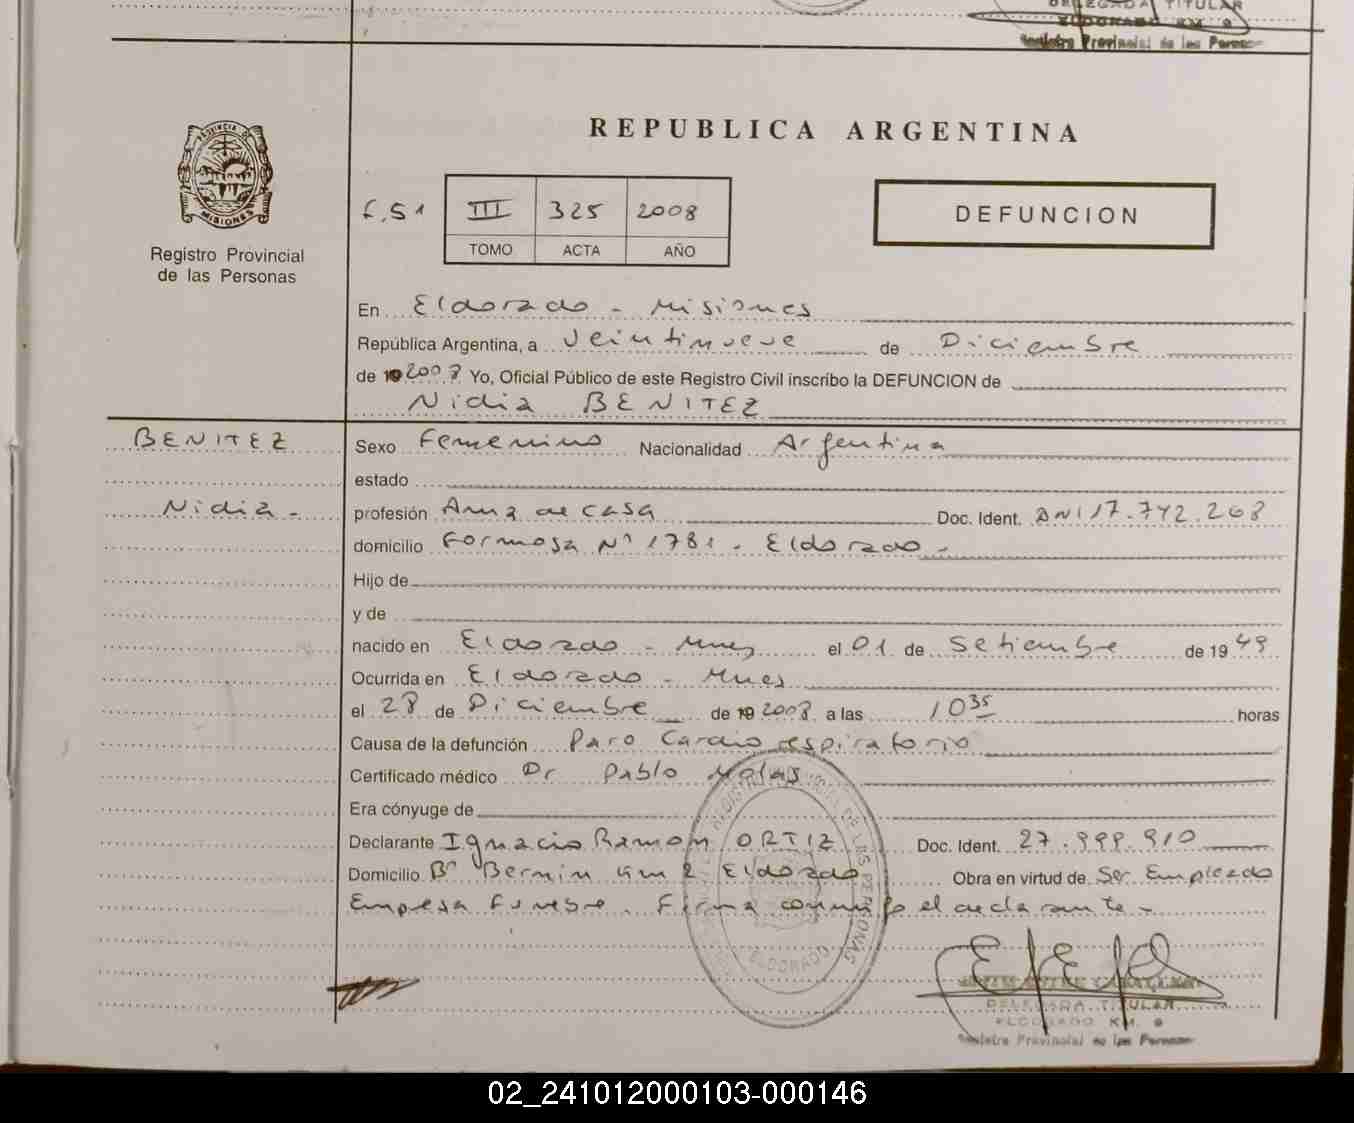 DELEGADA TITULAR
ELDORADO KM. 9
Registro Provincial de las Personas
REPUBLICA ARGENTINA
PROVINCIA DE
MISIONES
Registro Provincial
de las Personas
f. 51 III 325 2008
TOMO ACTA AÑO
DEFUNCION
En Eldorado - Misiones
República Argentina, a veintinueve de Diciembre
de 2008 Yo, Oficial Público de este Registro Civil inscribo la DEFUNCION de
Nidia BENITEZ
BENITEZ
Nidia -
Sexo Femenino Nacionalidad Argentina
estado
profesión Ama de casa Doc. Ident. DNI 17.742.268
domicilio Formosa N° 1781 - Eldorado -
Hijo de
y de
nacido en Eldorado - Mnes el 01 de Setiembre de 1949
Ocurrida en Eldorado - Mnes
el 28 de Diciembre de 2008 a las 10 35 horas
Causa de la defunción Paro Cardio respiratorio
Certificado médico Dr Pablo Molas
Era cónyuge de
Declarante Ignacio Ramon ORTIZ Doc. Ident. 27.999.910
Domicilio B° Bernin km 2 Eldorado Obra en virtud de Ser Empleado
Empresa Funebre. Firma conmigo el declarante -
ELDORADO
DELEGADA TITULAR
ELDORADO KM. 9
Registro Provincial de las Personas
02_241012000103-000146